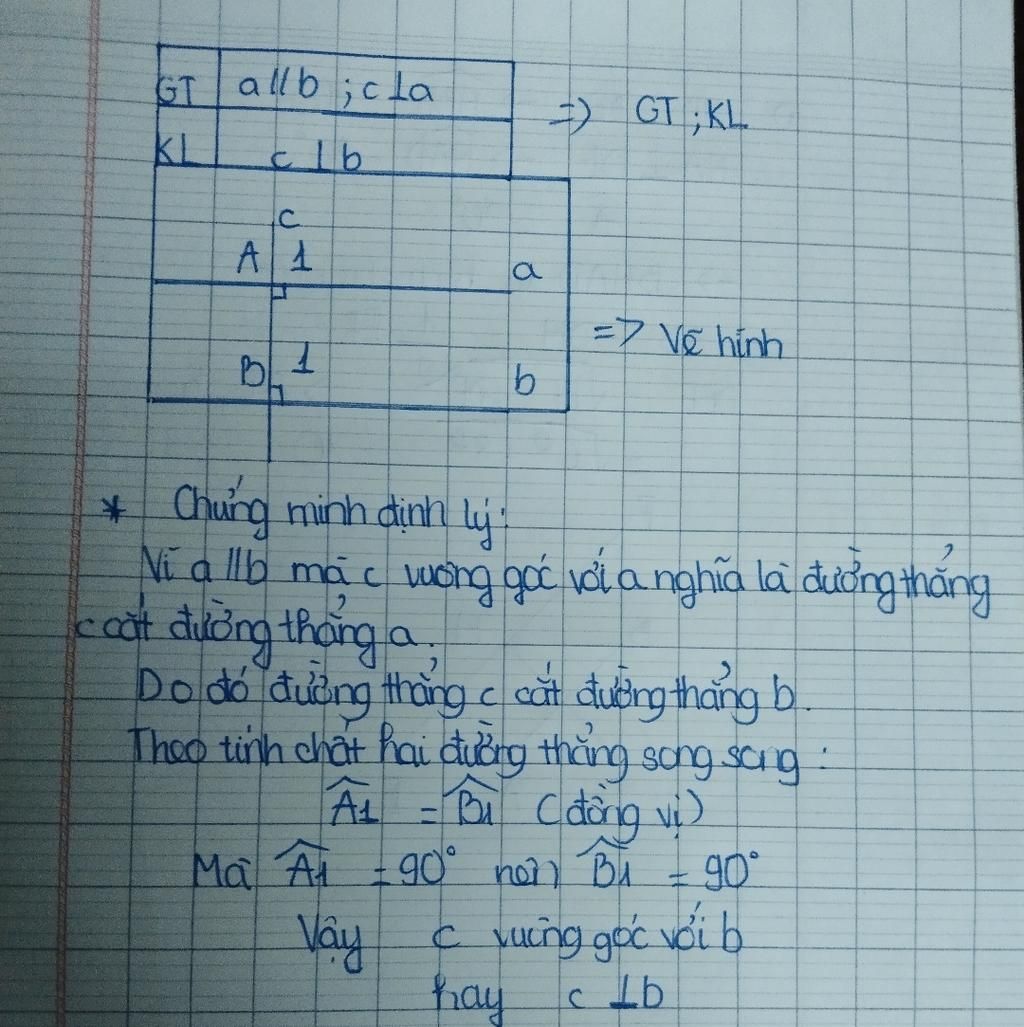 GT a//b ; c⊥a => GT ; KL
KL c⊥b
c
A 1 a
=> Vẽ hình
B 1 b
* Chứng minh định lý:
Vì a//b mà c vuông góc với a nghĩa là đường thẳng
c cắt đường thẳng a.
Do đó đường thẳng c cắt đường thẳng b.
Theo tính chất hai đường thẳng song song :
Â1 = B̂1 (đồng vị)
Mà Â1 = 90° nên B̂1 = 90°
Vậy c vuông góc với b
hay c ⊥b